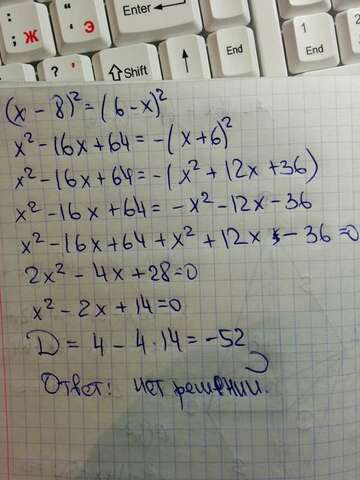 Enter
: Ж
;
" Э
'
End
1
End
2
? ?
Shift
End
(x - 8)² = (6 - x)²
x² - 16x + 64 = -(x + 6)²
x² - 16x + 64 = -(x² + 12x + 36)
x² - 16x + 64 = -x² - 12x - 36
x² - 16x + 64 + x² + 12x - 36 = 0
2x² - 4x + 28 = 0
x² - 2x + 14 = 0
D = 4 - 4·14 = -52
Ответ: нет решений.